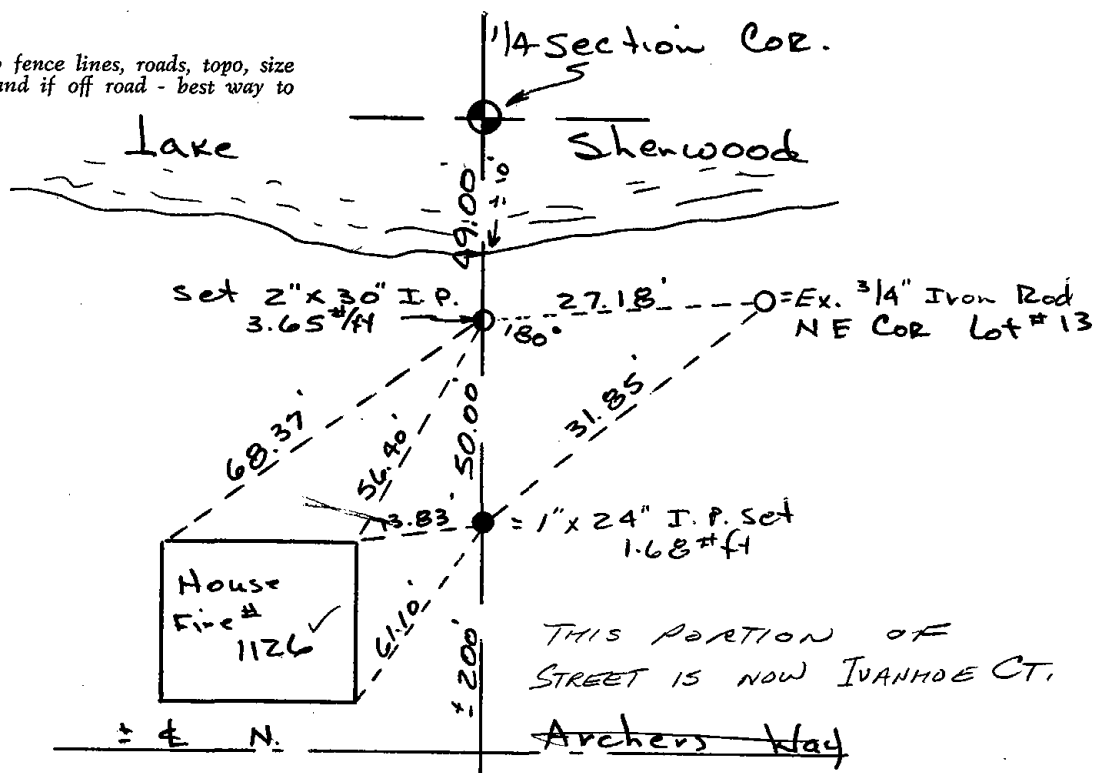 fence lines, roads, topo, size
and if off road - best way to
1/4 Section Cor.
Lake Sherwood
49.00'
± 10'
Set 2" x 30" I.P.
3.65#/ft
27.18'
180°
= Ex. 3/4" Iron Rod
NE Cor Lot # 13
68.37'
56.40'
50.00'
31.85'
13.83'
= 1" x 24" I.P. Set
1.68#ft
House
Fire #
1126 ✓
61.10'
± 200'
THIS PORTION OF
STREET IS NOW IVANHOE CT.
± ℄ N. Archers Way